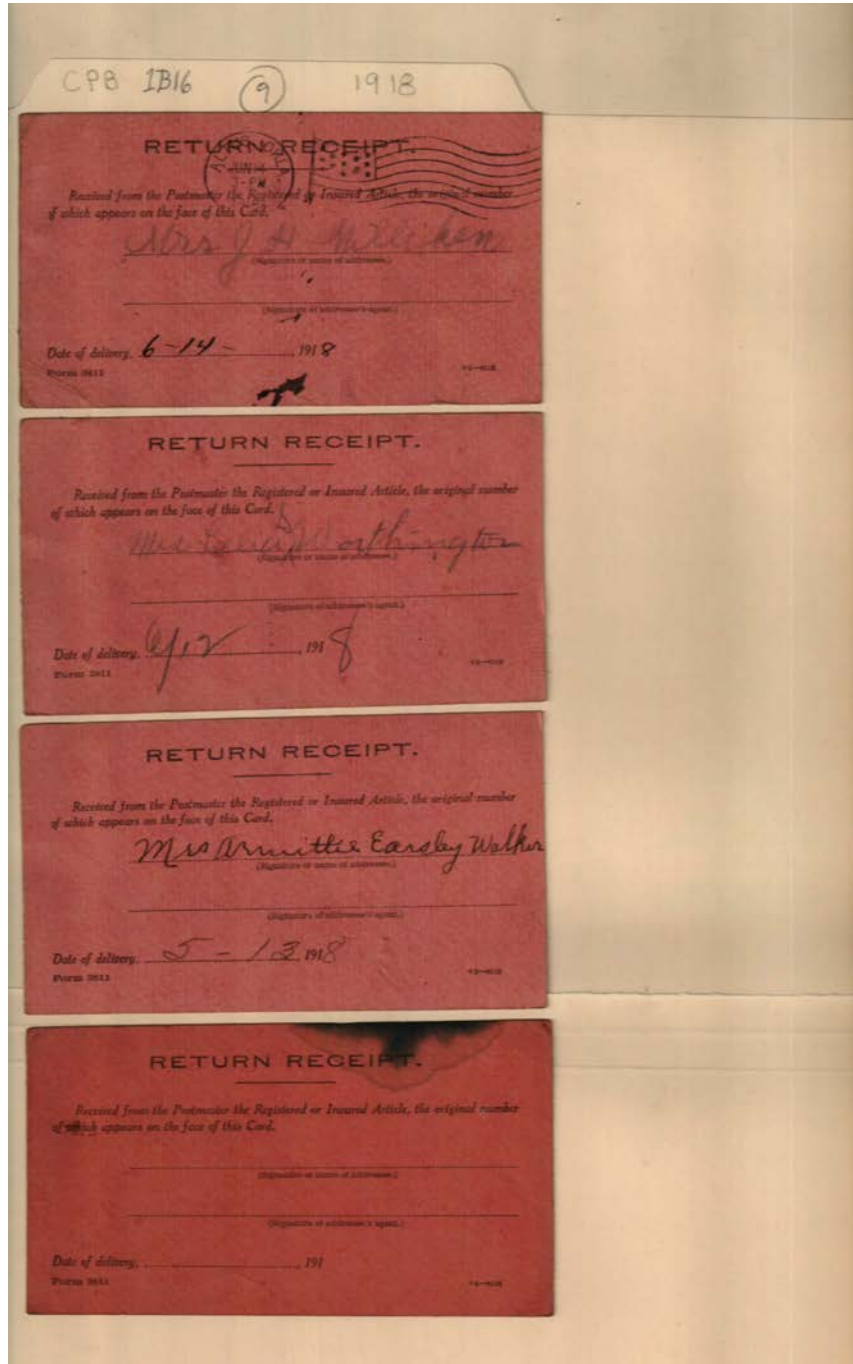 CPB 1B16 9 1918
RETURN RECEIPT.
JUN 14
-PM
Received from the Postmaster the Registered or Insured Article, the original number
of which appears on the face of this Card.
Mrs J H Milliken
(Signature or name of addressee.)
(Signature of addressee's agent.)
Date of delivery, 6-14- , 1918
Form 3811
RETURN RECEIPT.
Received from the Postmaster the Registered or Insured Article, the original number
of which appears on the face of this Card.
Mrs Worthington
(Signature or name of addressee.)
(Signature of addressee's agent.)
Date of delivery, 6/12 , 1918
Form 3811
RETURN RECEIPT.
Received from the Postmaster the Registered or Insured Article, the original number
of which appears on the face of this Card.
Mrs Armittie Earsley Walker
(Signature or name of addressee.)
(Signature of addressee's agent.)
Date of delivery, 5-13 , 1918
Form 3811
RETURN RECEIPT.
Received from the Postmaster the Registered or Insured Article, the original number
of which appears on the face of this Card.
(Signature or name of addressee.)
(Signature of addressee's agent.)
Date of delivery, , 191
Form 3811